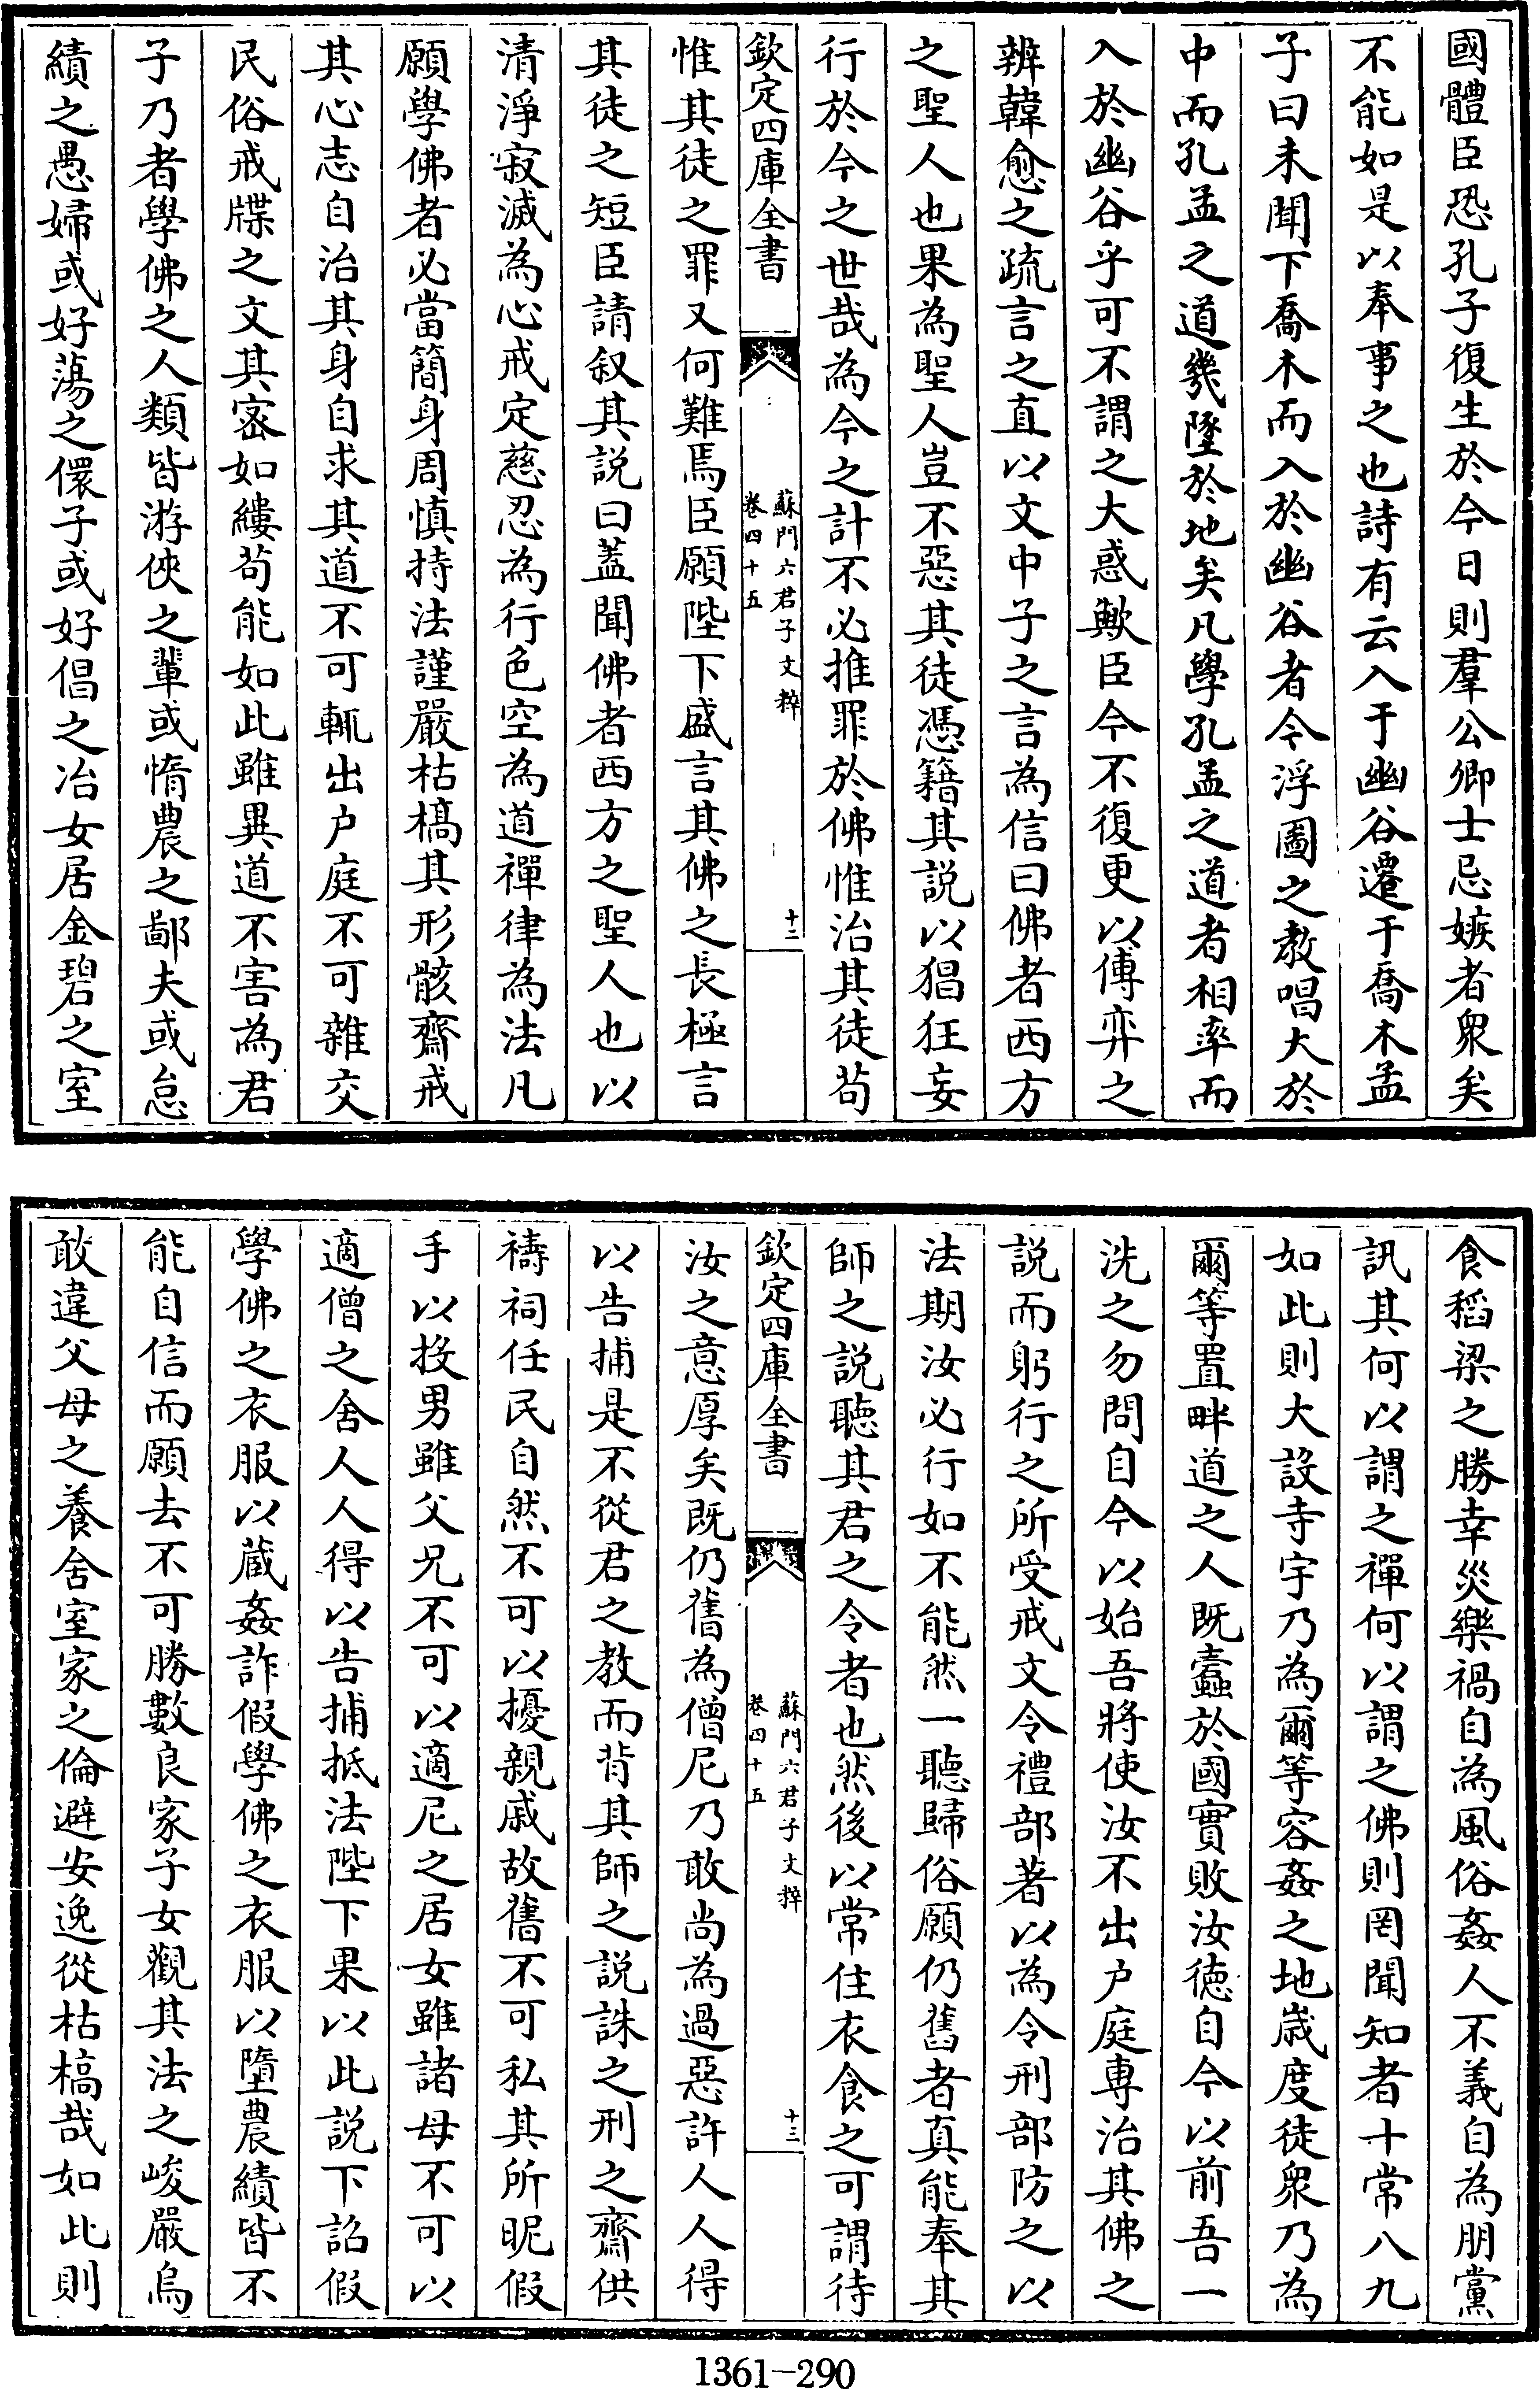 國體臣恐孔子復生於今日則羣公卿士忌嫉者衆矣
不能如是以奉事之也詩有云入于幽谷遷于喬木孟
子曰未聞下喬木而入於幽谷者今浮圖之教唱大於
中而孔孟之道幾墜於地矣凡學孔孟之道者相率而
入於幽谷乎可不謂之大惑歟臣今不復更以傅弈之
辨韓愈之疏言之直以文中子之言為信曰佛者西方
之聖人也果為聖人豈不惡其徒憑籍其説以猖狂妄
行於今之世哉為今之計不必推罪於佛惟治其徒茍
欽定四庫全書
蘇門六君子文粹
卷四十五
十二
惟其徒之罪又何難焉臣願陛下盛言其佛之長極言
其徒之短臣請叙其説曰蓋聞佛者西方之聖人也以
清淨寂滅為心戒定慈忍為行色空為道禪律為法凡
願學佛者必當簡身周慎持法謹嚴枯槁其形骸齋戒
其心志自治其身自求其道不可輒出户庭不可雜交
民俗戒牒之文其宻如縷茍能如此雖異道不害為君
子乃者學佛之人類皆游俠之輩或惰農之鄙夫或怠
績之愚婦或好蕩之儇子或好倡之冶女居金碧之室
食稻粱之勝幸災樂禍自為風俗姦人不義自為朋黨
訊其何以謂之禪何以謂之佛則罔聞知者十常八九
如此則大設寺宇乃為爾等容姦之地嵗度徒衆乃為
爾等置畔道之人既蠹於國實敗汝徳自今以前吾一
洗之勿問自今以始吾將使汝不出户庭専治其佛之
説而躬行之所受戒文令禮部著以為令刑部防之以
法期汝必行如不能然一聽歸俗願仍舊者真能奉其
師之説聽其君之令者也然後以常住衣食之可謂待
欽定四庫全書
蘇門六君子文粹
卷四十五
十三
汝之意厚矣既仍舊為僧尼乃敢尚為過惡許人人得
以告捕是不從君之教而背其師之説誅之刑之齋供
禱祠任民自然不可以擾親戚故舊不可私其所昵假
手以投男雖父兄不可以適尼之居女雖諸母不可以
適僧之舍人人得以告捕抵法陛下果以此説下詔假
學佛之衣服以蔵姦詐假學佛之衣服以墮農績皆不
能自信而願去不可勝數良家子女觀其法之峻嚴烏
敢違父母之養舍室家之倫避安逸從枯槁哉如此則
1361-290